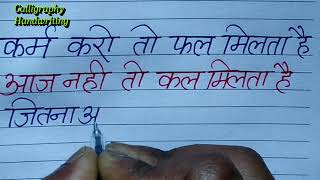 Calligraphy
Handwriting
कर्म करो तो फल मिलता है
आज नही तो कल मिलता है
जितना अ